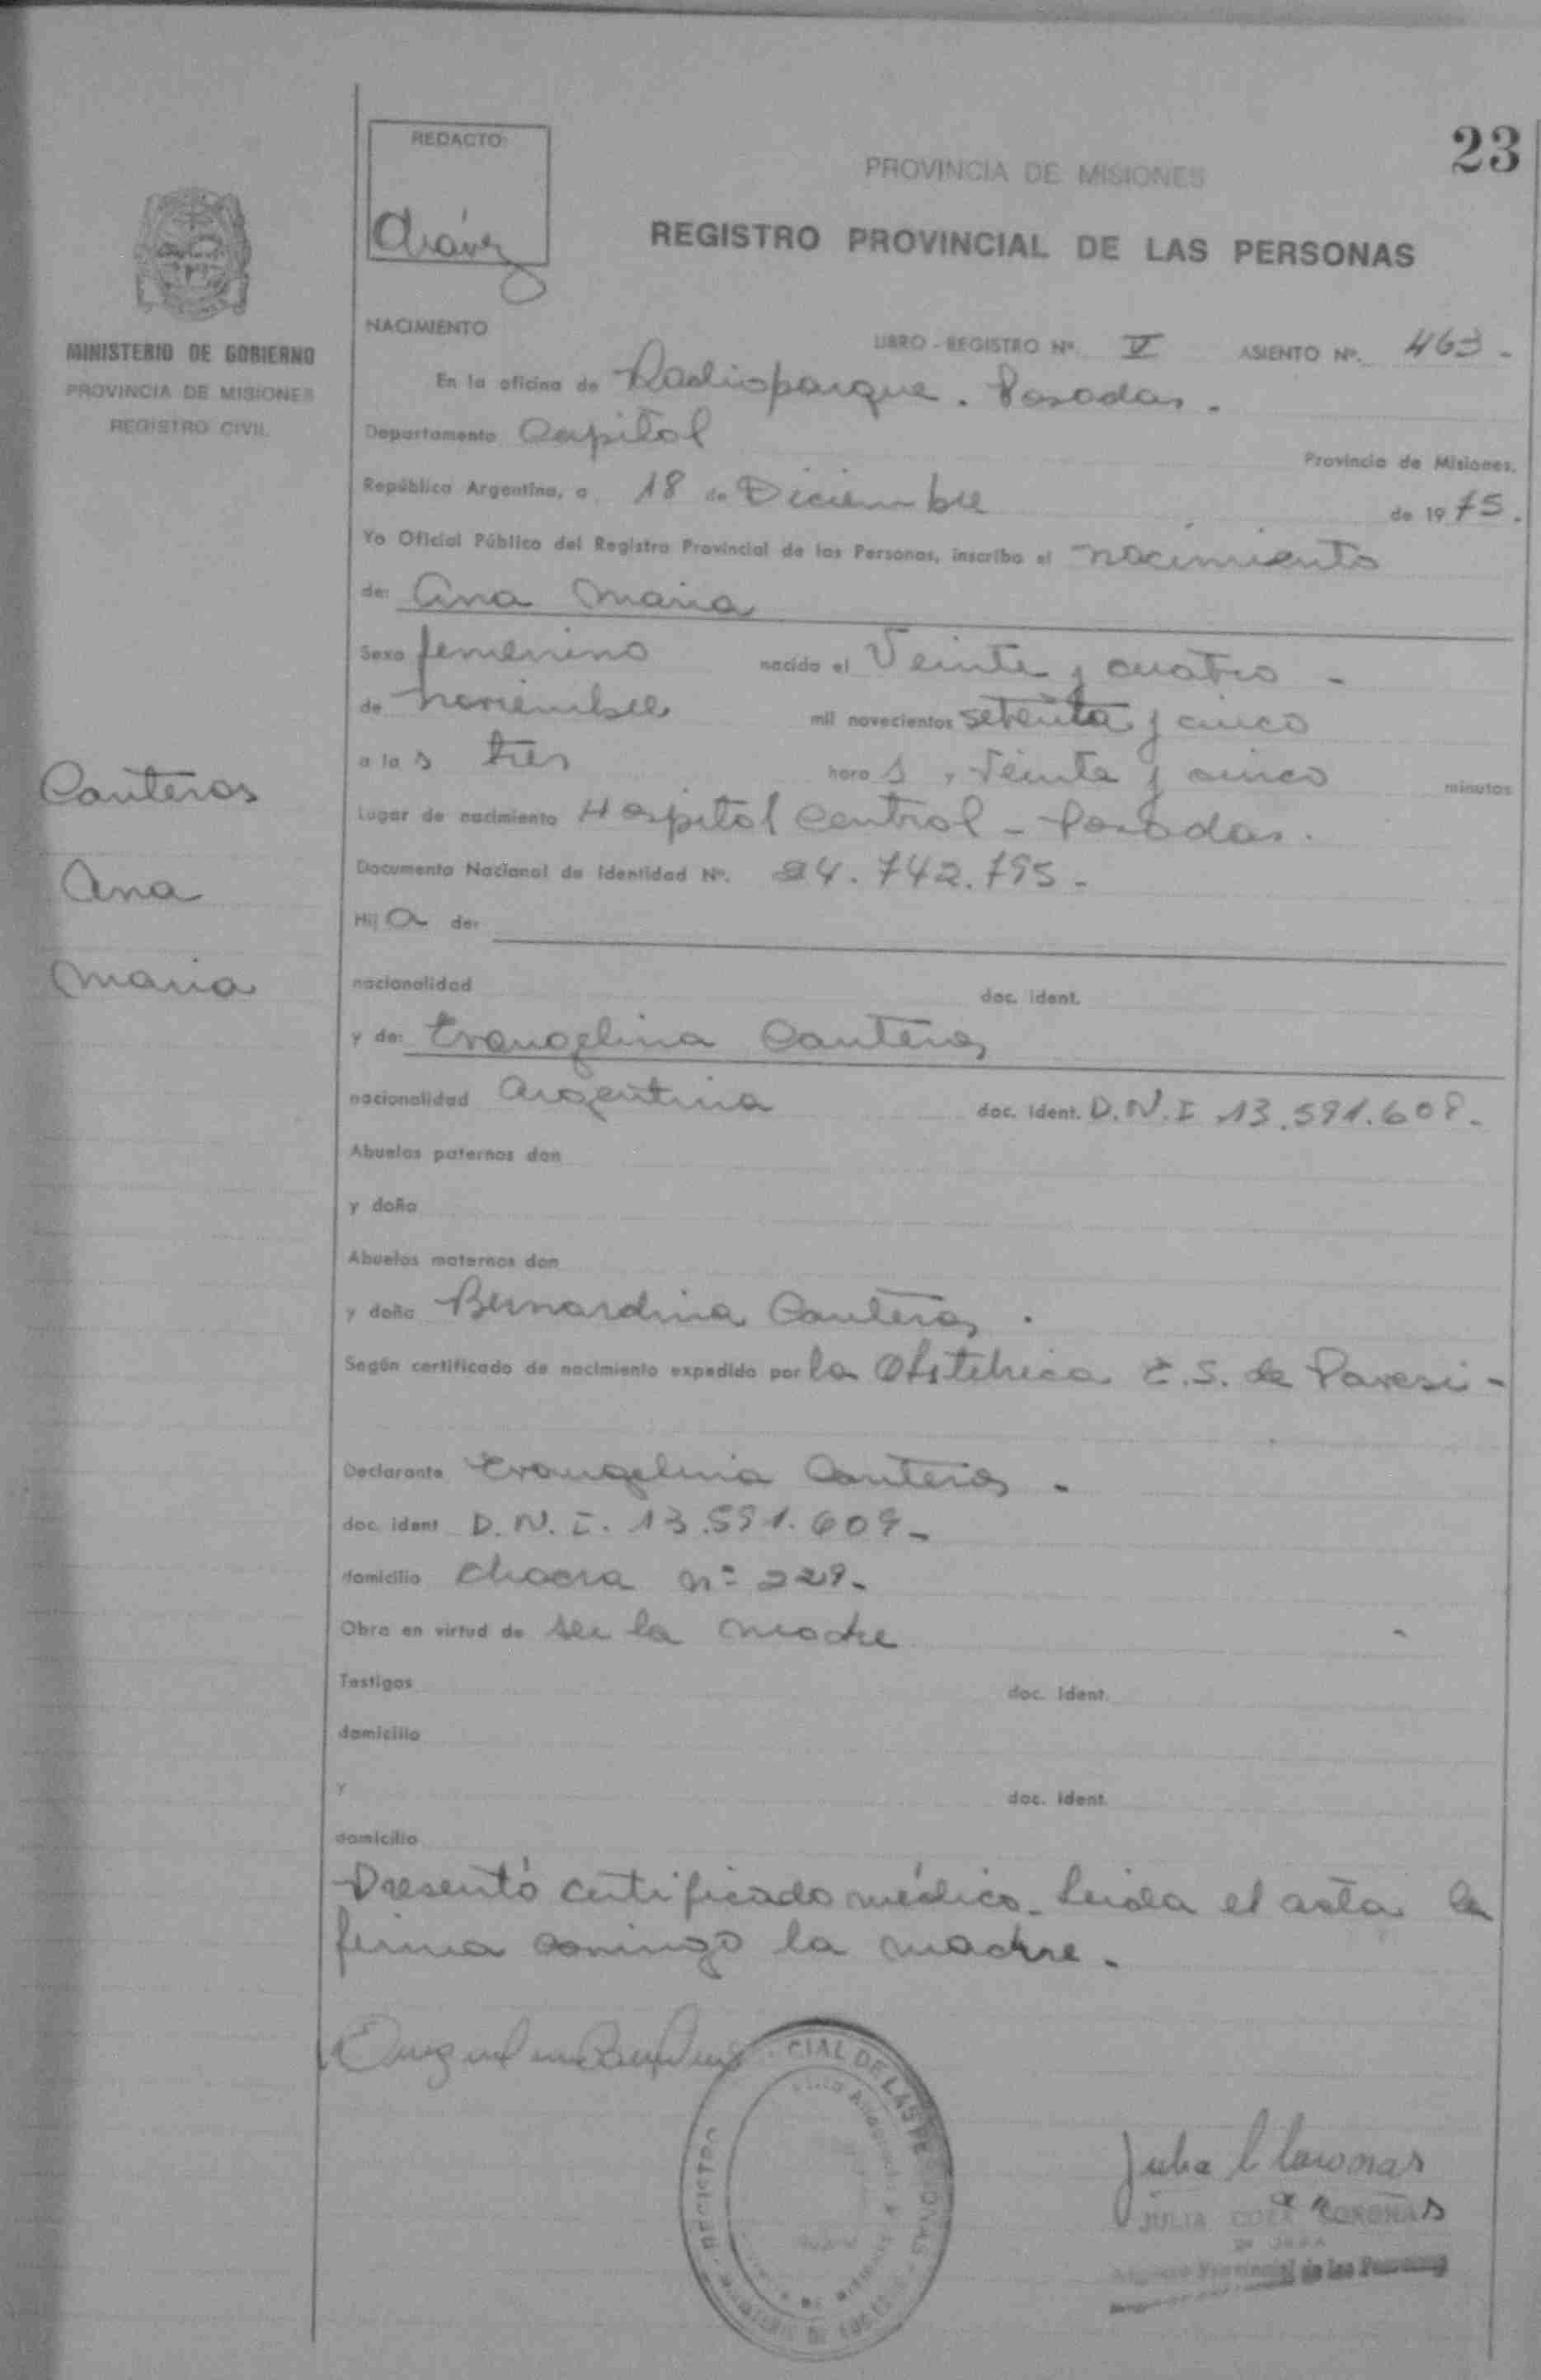 23
REDACTO:
Chávez
PROVINCIA DE MISIONES
REGISTRO PROVINCIAL DE LAS PERSONAS
MINISTERIO DE GOBIERNO
PROVINCIA DE MISIONES
REGISTRO CIVIL
NACIMIENTO
LIBRO - REGISTRO Nº. V ASIENTO Nº. 463 -
En la oficina de Radioparque. Posadas.
Departamento Capital Provincia de Misiones.
República Argentina, a 18 de Diciembre de 1975.
Yo Oficial Público del Registro Provincial de las Personas, inscribo el nacimiento
de: Ana Maria
Sexo femenino nacido el Veinte y cuatro -
de noviembre mil novecientos setenta y cinco
a las tres horas, veinte y cinco minutos
Canteros
Ana
Maria
Lugar de nacimiento Hospital Central - Posadas.
Documento Nacional de Identidad Nº. 24.742.795-
Hija de:
nacionalidad doc. ident.
y de: Evangelina Canteros
nacionalidad Argentina doc. ident. D.N.I 13.591.609-
Abuelos paternos don
y doña
Abuelos maternos don
y doña Bernardina Canteros.
Según certificado de nacimiento expedido por la Obstetrica E.S. de Paresi-
Declarante Evangelina Canteros.
doc. ident D.N.I. 13.591.609-
domicilio Chacra nº 229-
Obra en virtud de ser la madre
Testigos doc. ident.
domicilio
y doc. ident.
domicilio
Presentó certificado médico. Leida el acta la
firma conmigo la madre.
CIAL DE LAS PERSONAS
REGISTRO
Julia C Coronas
JULIA CORONAS
Provincial de las Personas